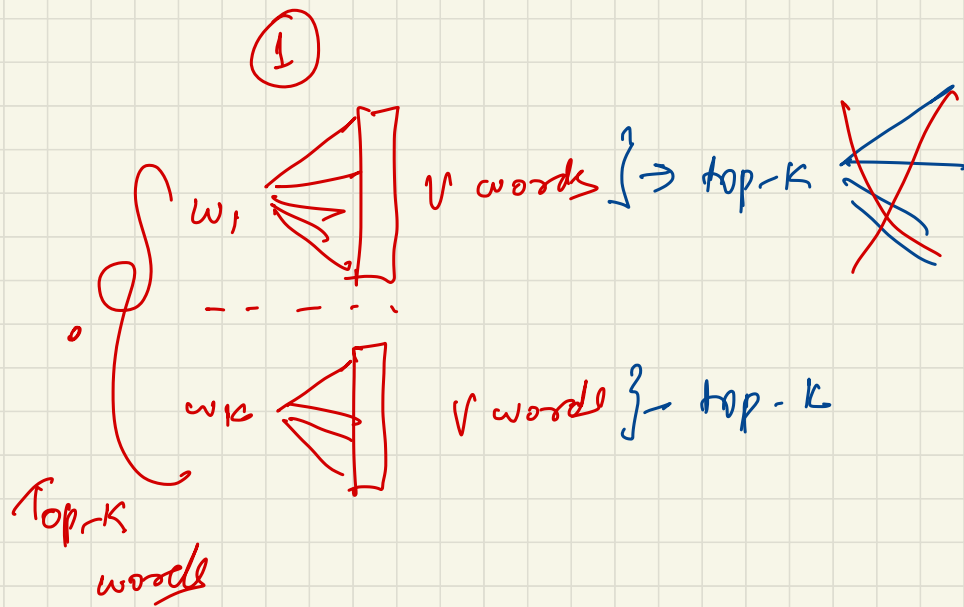 1
w1 V words } → top-K
wK V words } - top-K
Top-K
words